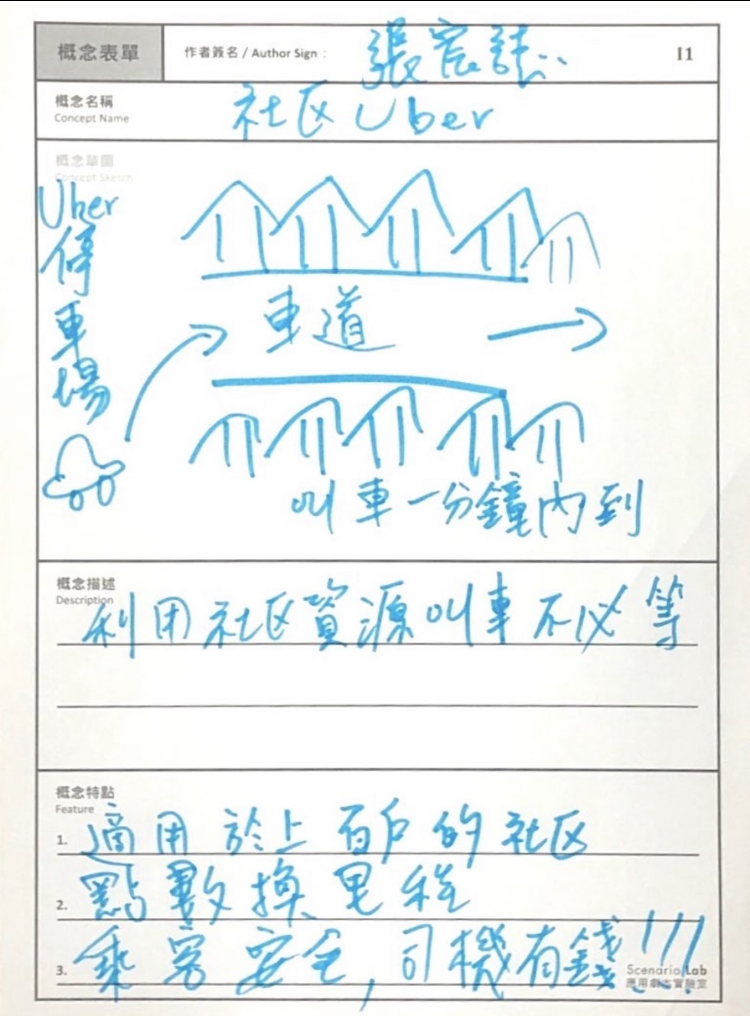 概念表單
作者簽名 / Author Sign : 張宸誌
I1
概念名稱
Concept Name
社区 Uber
概念草圖
Concept Sketch
Uber
停
車
場
車道
叫車一分鐘內到
概念描述
Description
利用社区資源叫車不必等
概念特點
Feature
1. 適用於上百戶的社区
2. 點數換里程
3. 乘客安全,司機有錢!!!
Scenario Lab
應用劇本實驗室